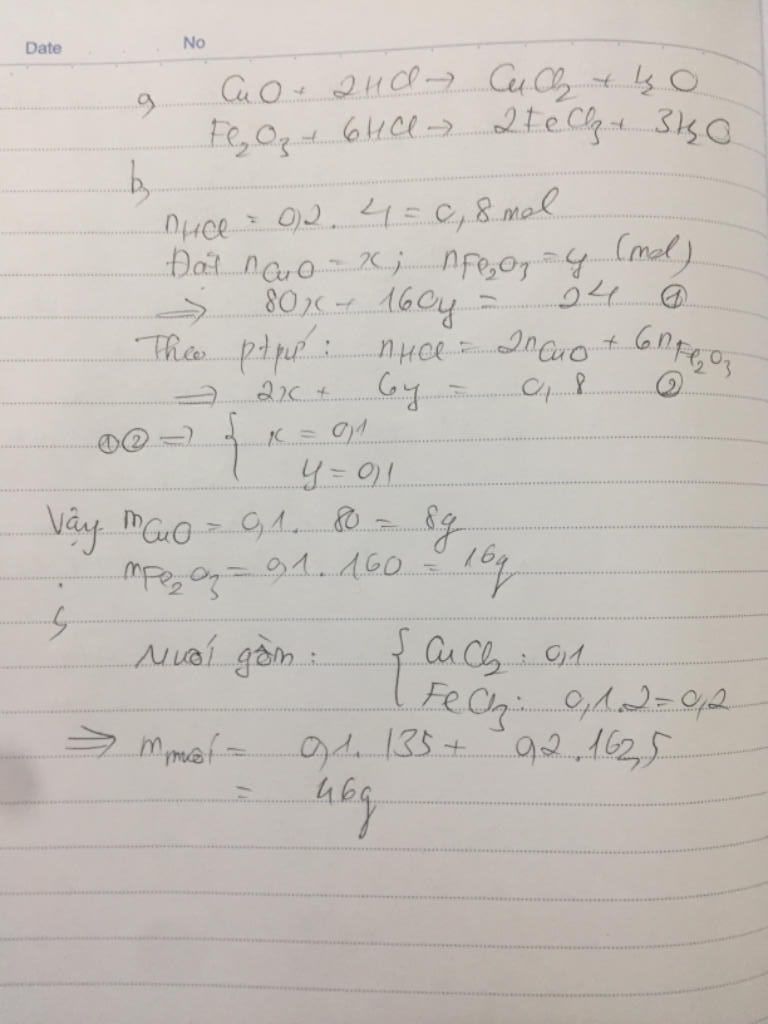 Date No
a, CuO + 2HCl → CuCl₂ + H₂O
Fe₂O₃ + 6HCl → 2FeCl₃ + 3H₂O
b,
nHCl = 0,2 . 4 = 0,8 mol
Đặt nCuO = x ; nFe₂O₃ = y (mol)
⇒ 80x + 160y = 24 ①
Theo ptpứ : nHCl = 2nCuO + 6nFe₂O₃
⇒ 2x + 6y = 0,8 ②
①② ⇒ { x = 0,1
y = 0,1
Vậy mCuO = 0,1 . 80 = 8g
mFe₂O₃ = 0,1 . 160 = 16g
c,
Muối gồm : { CuCl₂ : 0,1
FeCl₃ : 0,1.2 = 0,2
⇒ mmuối = 0,1 . 135 + 0,2 . 162,5
= 46g